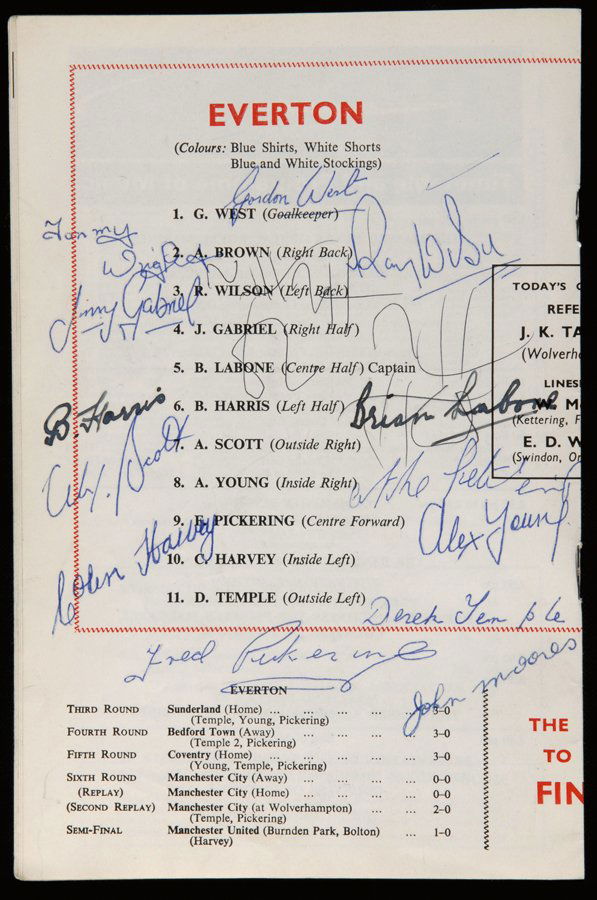 EVERTON
(Colours: Blue Shirts, White Shorts
Blue and White Stockings)
Gordon West
1. G. WEST (Goalkeeper)
Tommy
Wright
Ray Wilson
2. A. BROWN (Right Back)
3. R. WILSON (Left Back)
Jimmy Gabriel
4. J. GABRIEL (Right Half)
5. B. LABONE (Centre Half) Captain
6. B. HARRIS (Left Half)
B. Harris
Brian Labone
7. A. SCOTT (Outside Right)
Alex. Scott
8. A. YOUNG (Inside Right)
9. F. PICKERING (Centre Forward)
Alex Young
10. C. HARVEY (Inside Left)
Colin Harvey
11. D. TEMPLE (Outside Left)
Derek Temple
TODAY'S
REFE
J. K. TA
(Wolverh
LINES
W. M
(Kettering,
E. D. W
(Swindon,
Fred Pickering
John Moores
EVERTON
THIRD ROUND Sunderland (Home) ... ... ... ... 3–0
(Temple, Young, Pickering)
FOURTH ROUND Bedford Town (Away) ... ... ... 3–0
(Temple 2, Pickering)
FIFTH ROUND Coventry (Home) ... ... ... ... 3–0
(Young, Temple, Pickering)
SIXTH ROUND Manchester City (Away) ... ... ... 0–0
(REPLAY) Manchester City (Home) ... ... ... 0–0
(SECOND REPLAY) Manchester City (at Wolverhampton) ... 2–0
(Temple, Pickering)
SEMI-FINAL Manchester United (Burnden Park, Bolton) ... 1–0
(Harvey)
THE
TO
FIN